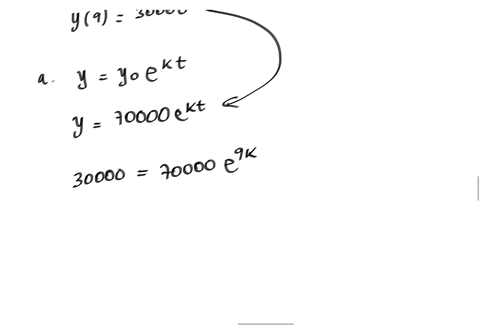 y(9) = 30000
a. y = y₀ e^{kt}
y = 70000 e^{kt}
30000 = 70000 e^{9k}